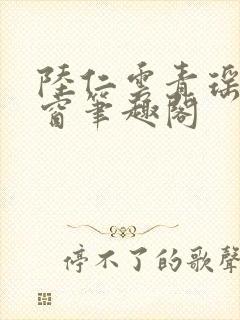 陸仁雲青瑤
窗筆趣閣
停不了的歌聲